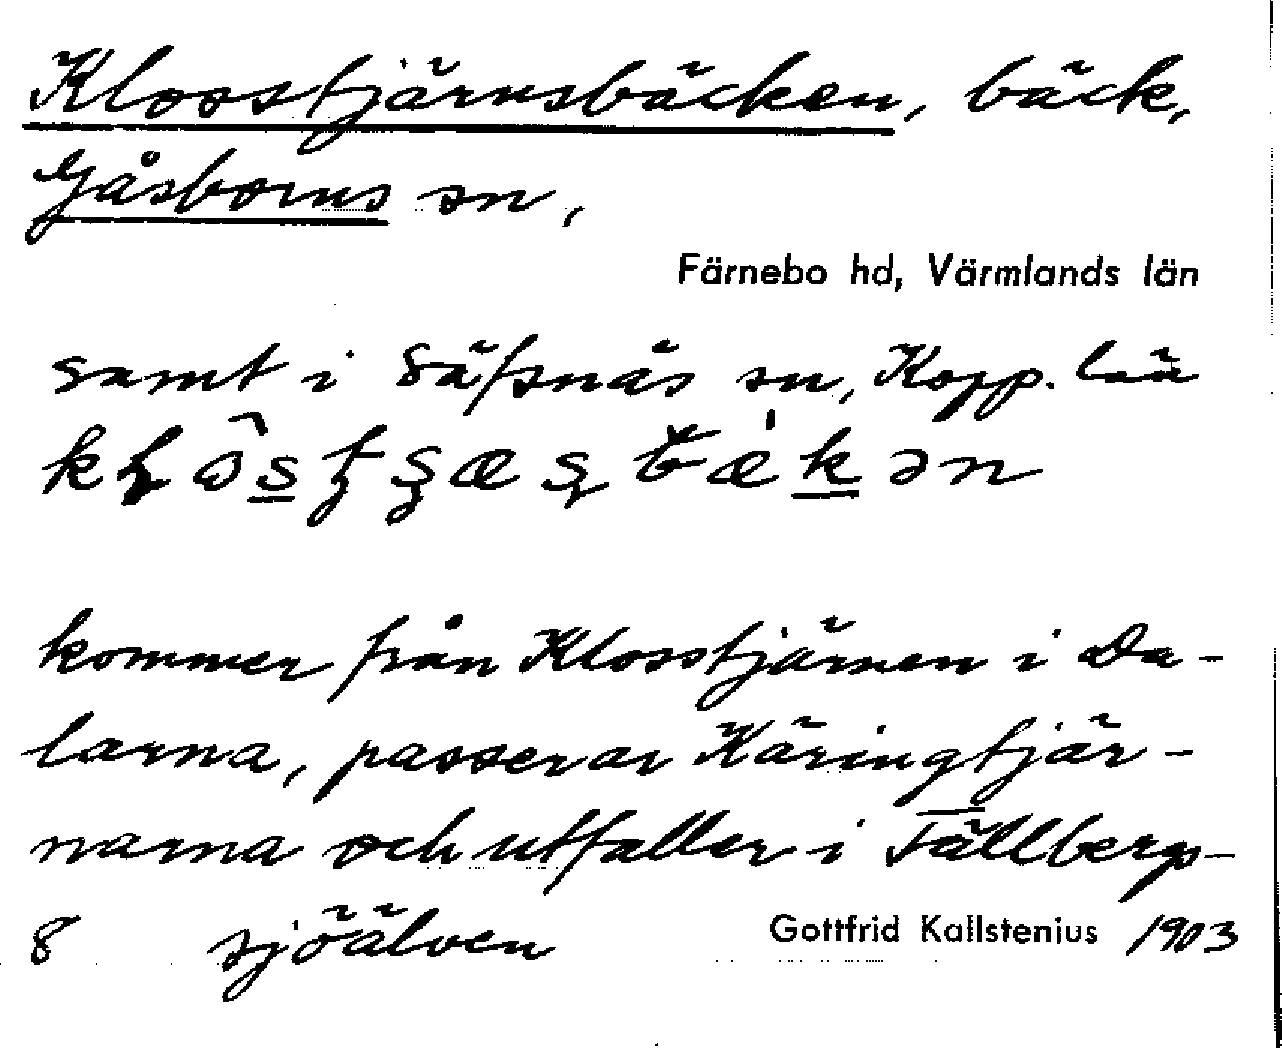 Klosstjärnsbäcken, bäck,
Gåsborns sn,
Färnebo hd, Värmlands län
samt i Säfsnäs sn, Kopp. län
kommer från Klosstjärnen i Da-
larna, passerar Käringtjär-
narna och utfaller i Tällbergs-
8 sjöälven Gottfrid Kallstenius 1903